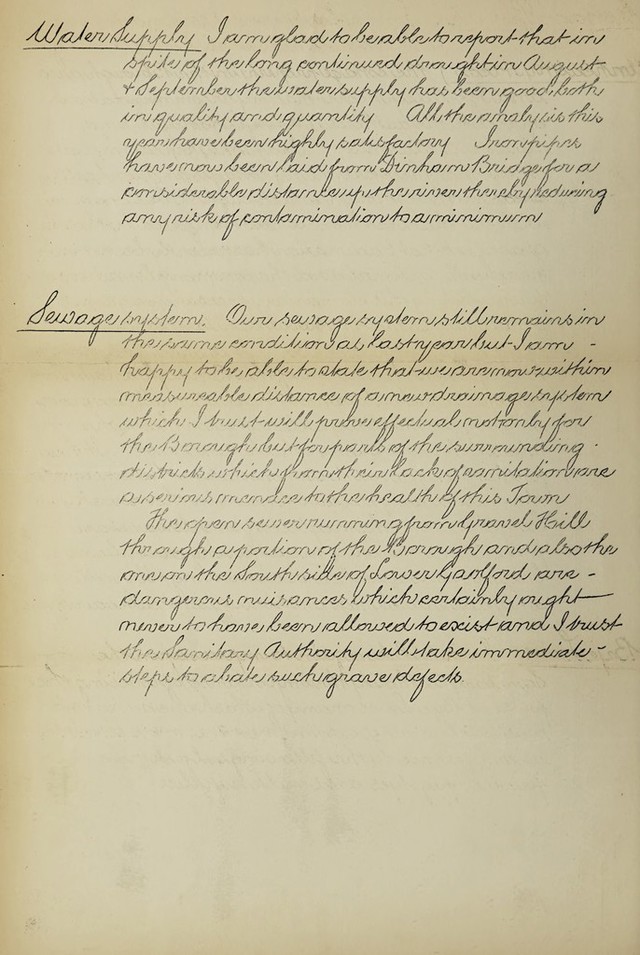 Water Supply I am glad to be able to report that in
spite of the long continued drought in August
& September the water supply has been good, both
in quality and quantity All the analysis this
year have been highly satisfactory Iron pipes
have now been laid from Dinham Bridge for a
considerable distance up the river thereby reducing
any risk of contamination to a minimum
Sewage system. Our sewage system still remains in
the same condition as last year but I am -
happy to be able to state that we are now within
measureable distance of a new drainage system
which I trust will prove effectual not only for
the Borough but for parts of the surrounding
districts which from their lack of sanitation are
a serious menace to the health of this Town
The open sewer running from Gravel Hill
through a portion of the Borough and also the
one on the South side of Lower Galdford are -
dangerous nuisances which certainly ought
never to have been allowed to exist and I trust
the Sanitary Authority will take immediate -
steps to abate such grave defects.